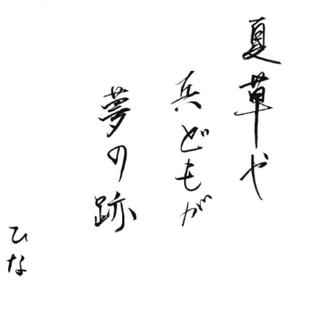 夏草や
兵どもが
夢の跡
ひな